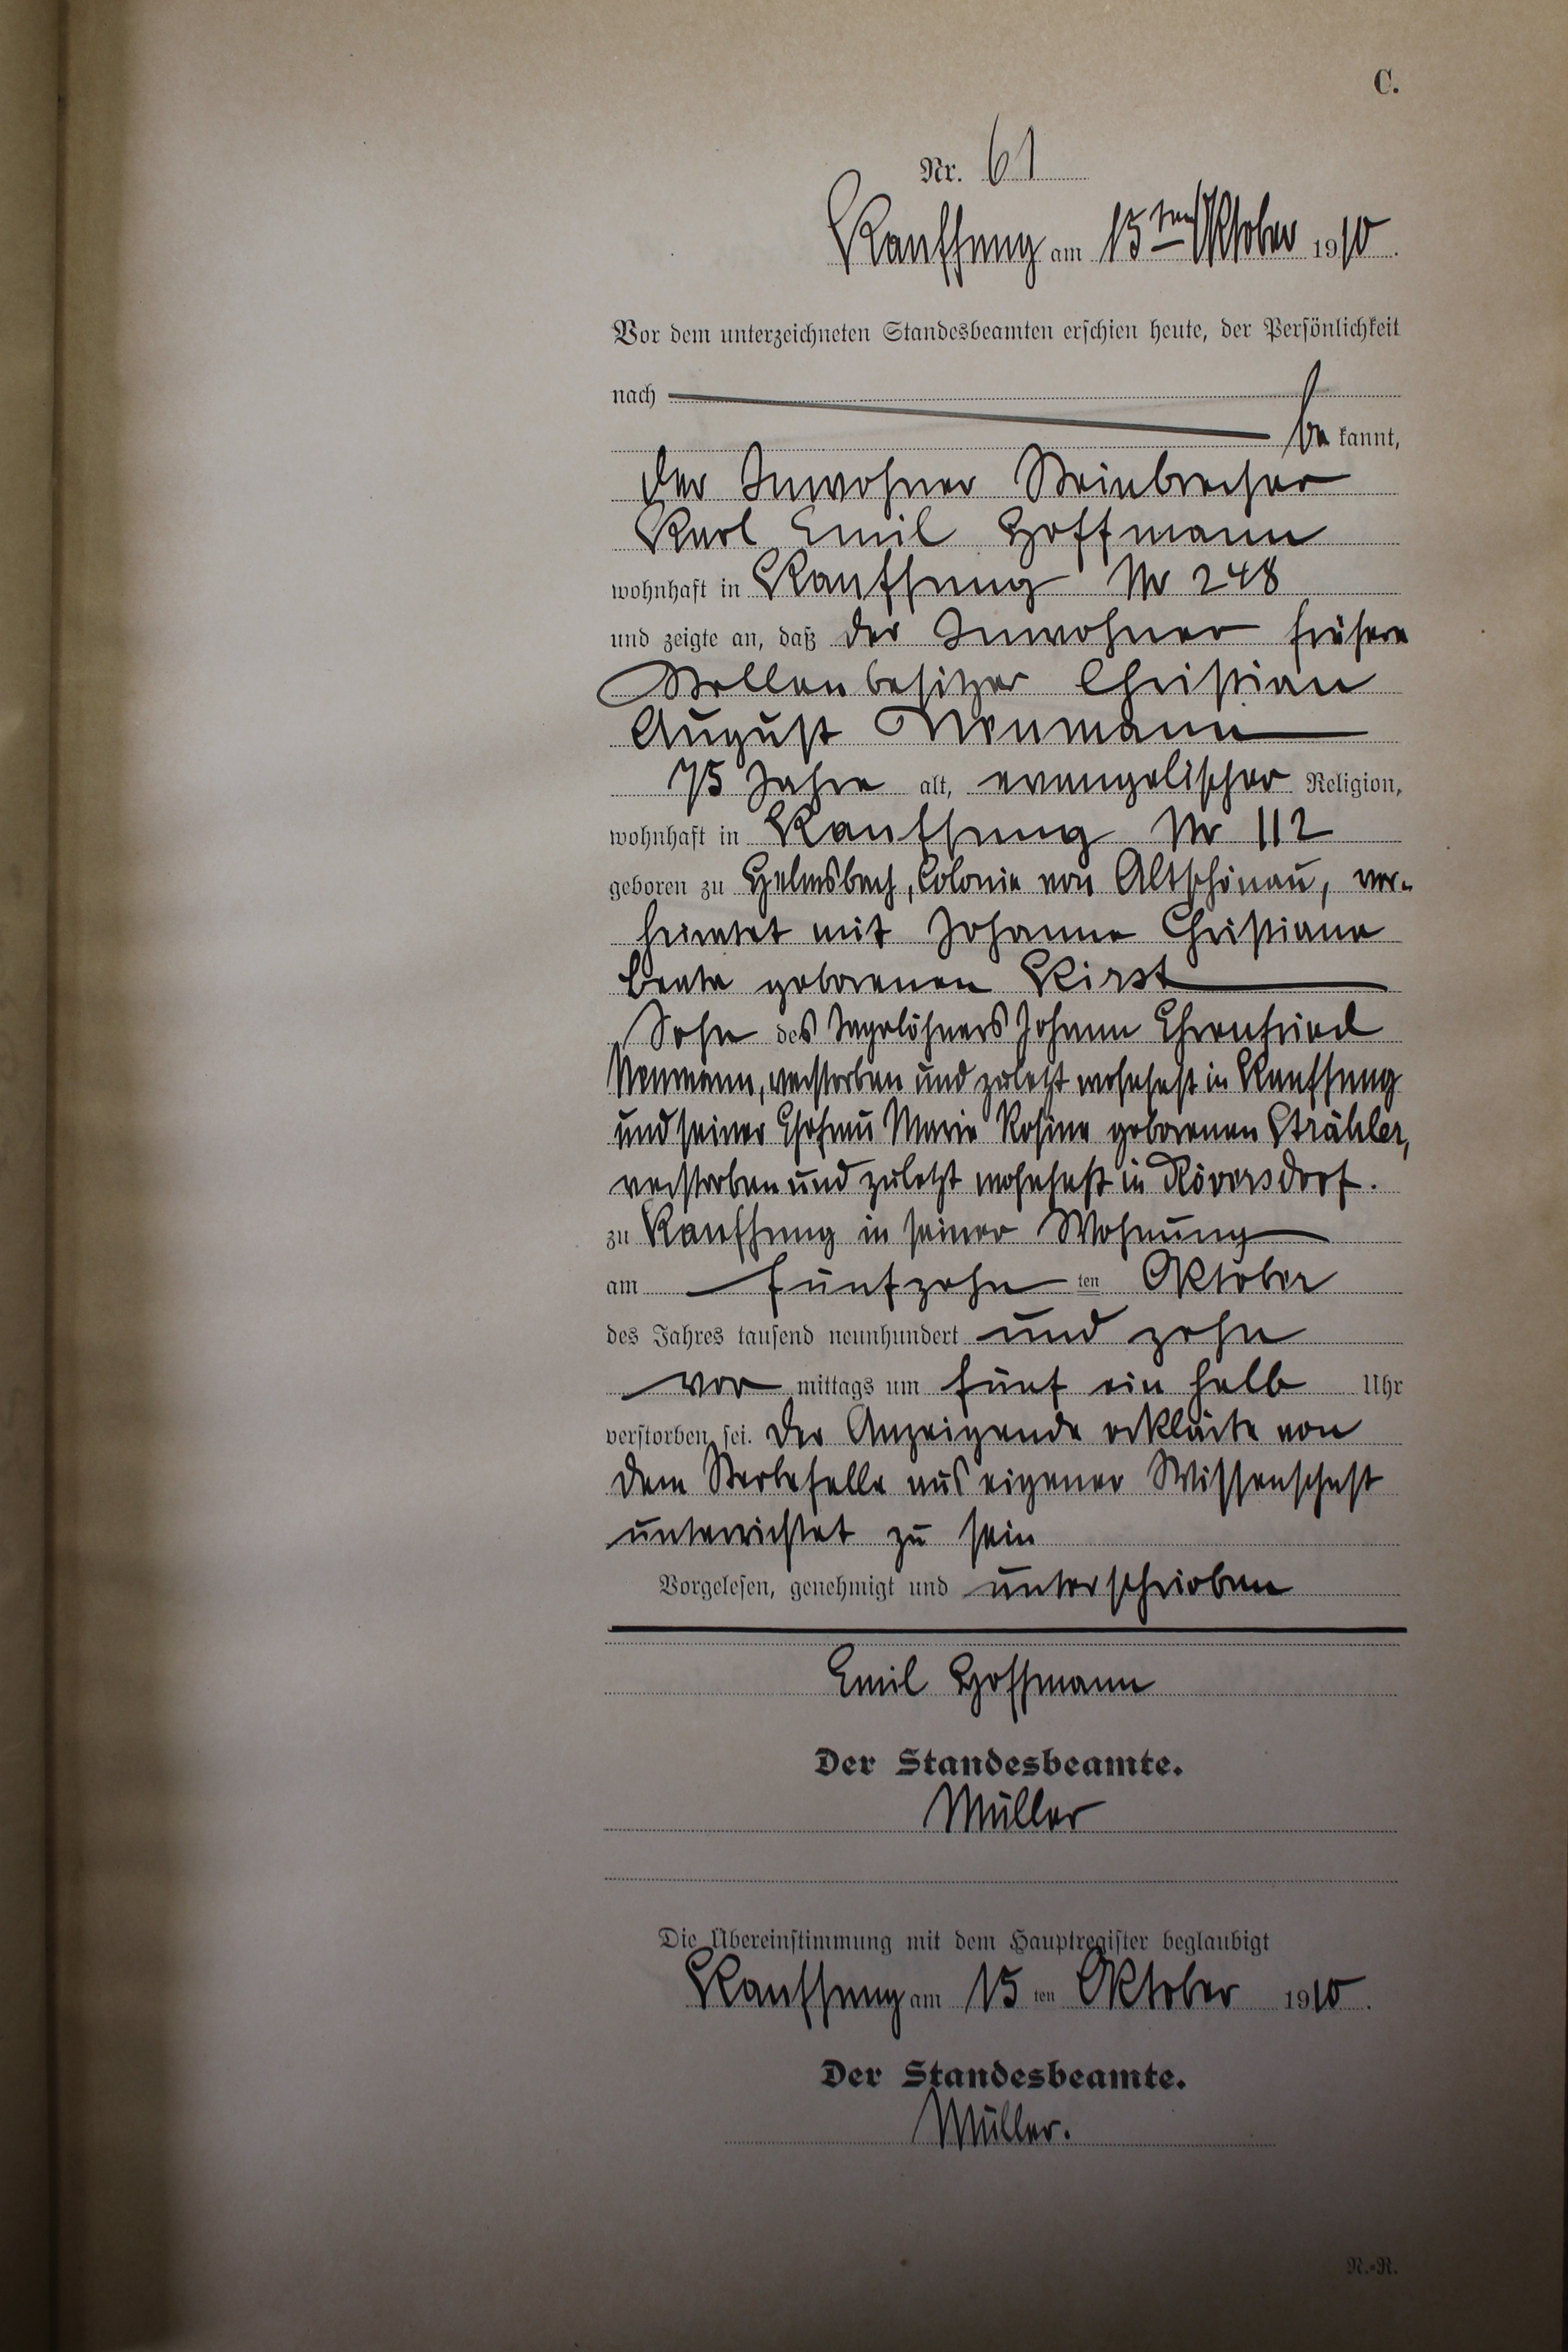 C.
Nr. 61
Kauffung am 15ten Oktober 1910.
Vor dem unterzeichneten Standesbeamten erschien heute, der Persönlichkeit
nach
be kannt,
der Inwohner Steinbrecher
Karl Emil Hoffmann
wohnhaft in Kauffung Nr 248
und zeigte an, daß der Inwohner frühere
Stellenbesitzer Christian
August Neumann
75 Jahre alt, evangelischer Religion,
wohnhaft in Kauffung Nr 112
geboren zu Helmsbach, Colonie von Altschönau, ver-
heiratet mit Johanne Christiane
Beate geborenen Kirst
Sohn des Tagelöhners Johann Ehrenfried
Neumann, verstorben und zuletzt wohnhaft in Kauffung
und seiner Ehefrau Marie Rosine geborenen Strähler,
verstorben und zuletzt wohnhaft in Röversdorf.
zu Kauffung in seiner Wohnung
am fünfzehn ten Oktober
des Jahres tausend neunhundert und zehn
vor mittags um fünf ein halb Uhr
verstorben sei. Der Anzeigende erklärte von
dem Sterbefalle aus eigener Wissenschaft
unterrichtet zu sein
Vorgelesen, genehmigt und unterschrieben
Emil Hoffmann
Der Standesbeamte.
Müller
Die Übereinstimmung mit dem Hauptregister beglaubigt
Kauffung am 15 ten Oktober 1910.
Der Standesbeamte.
Müller.
N.-R.